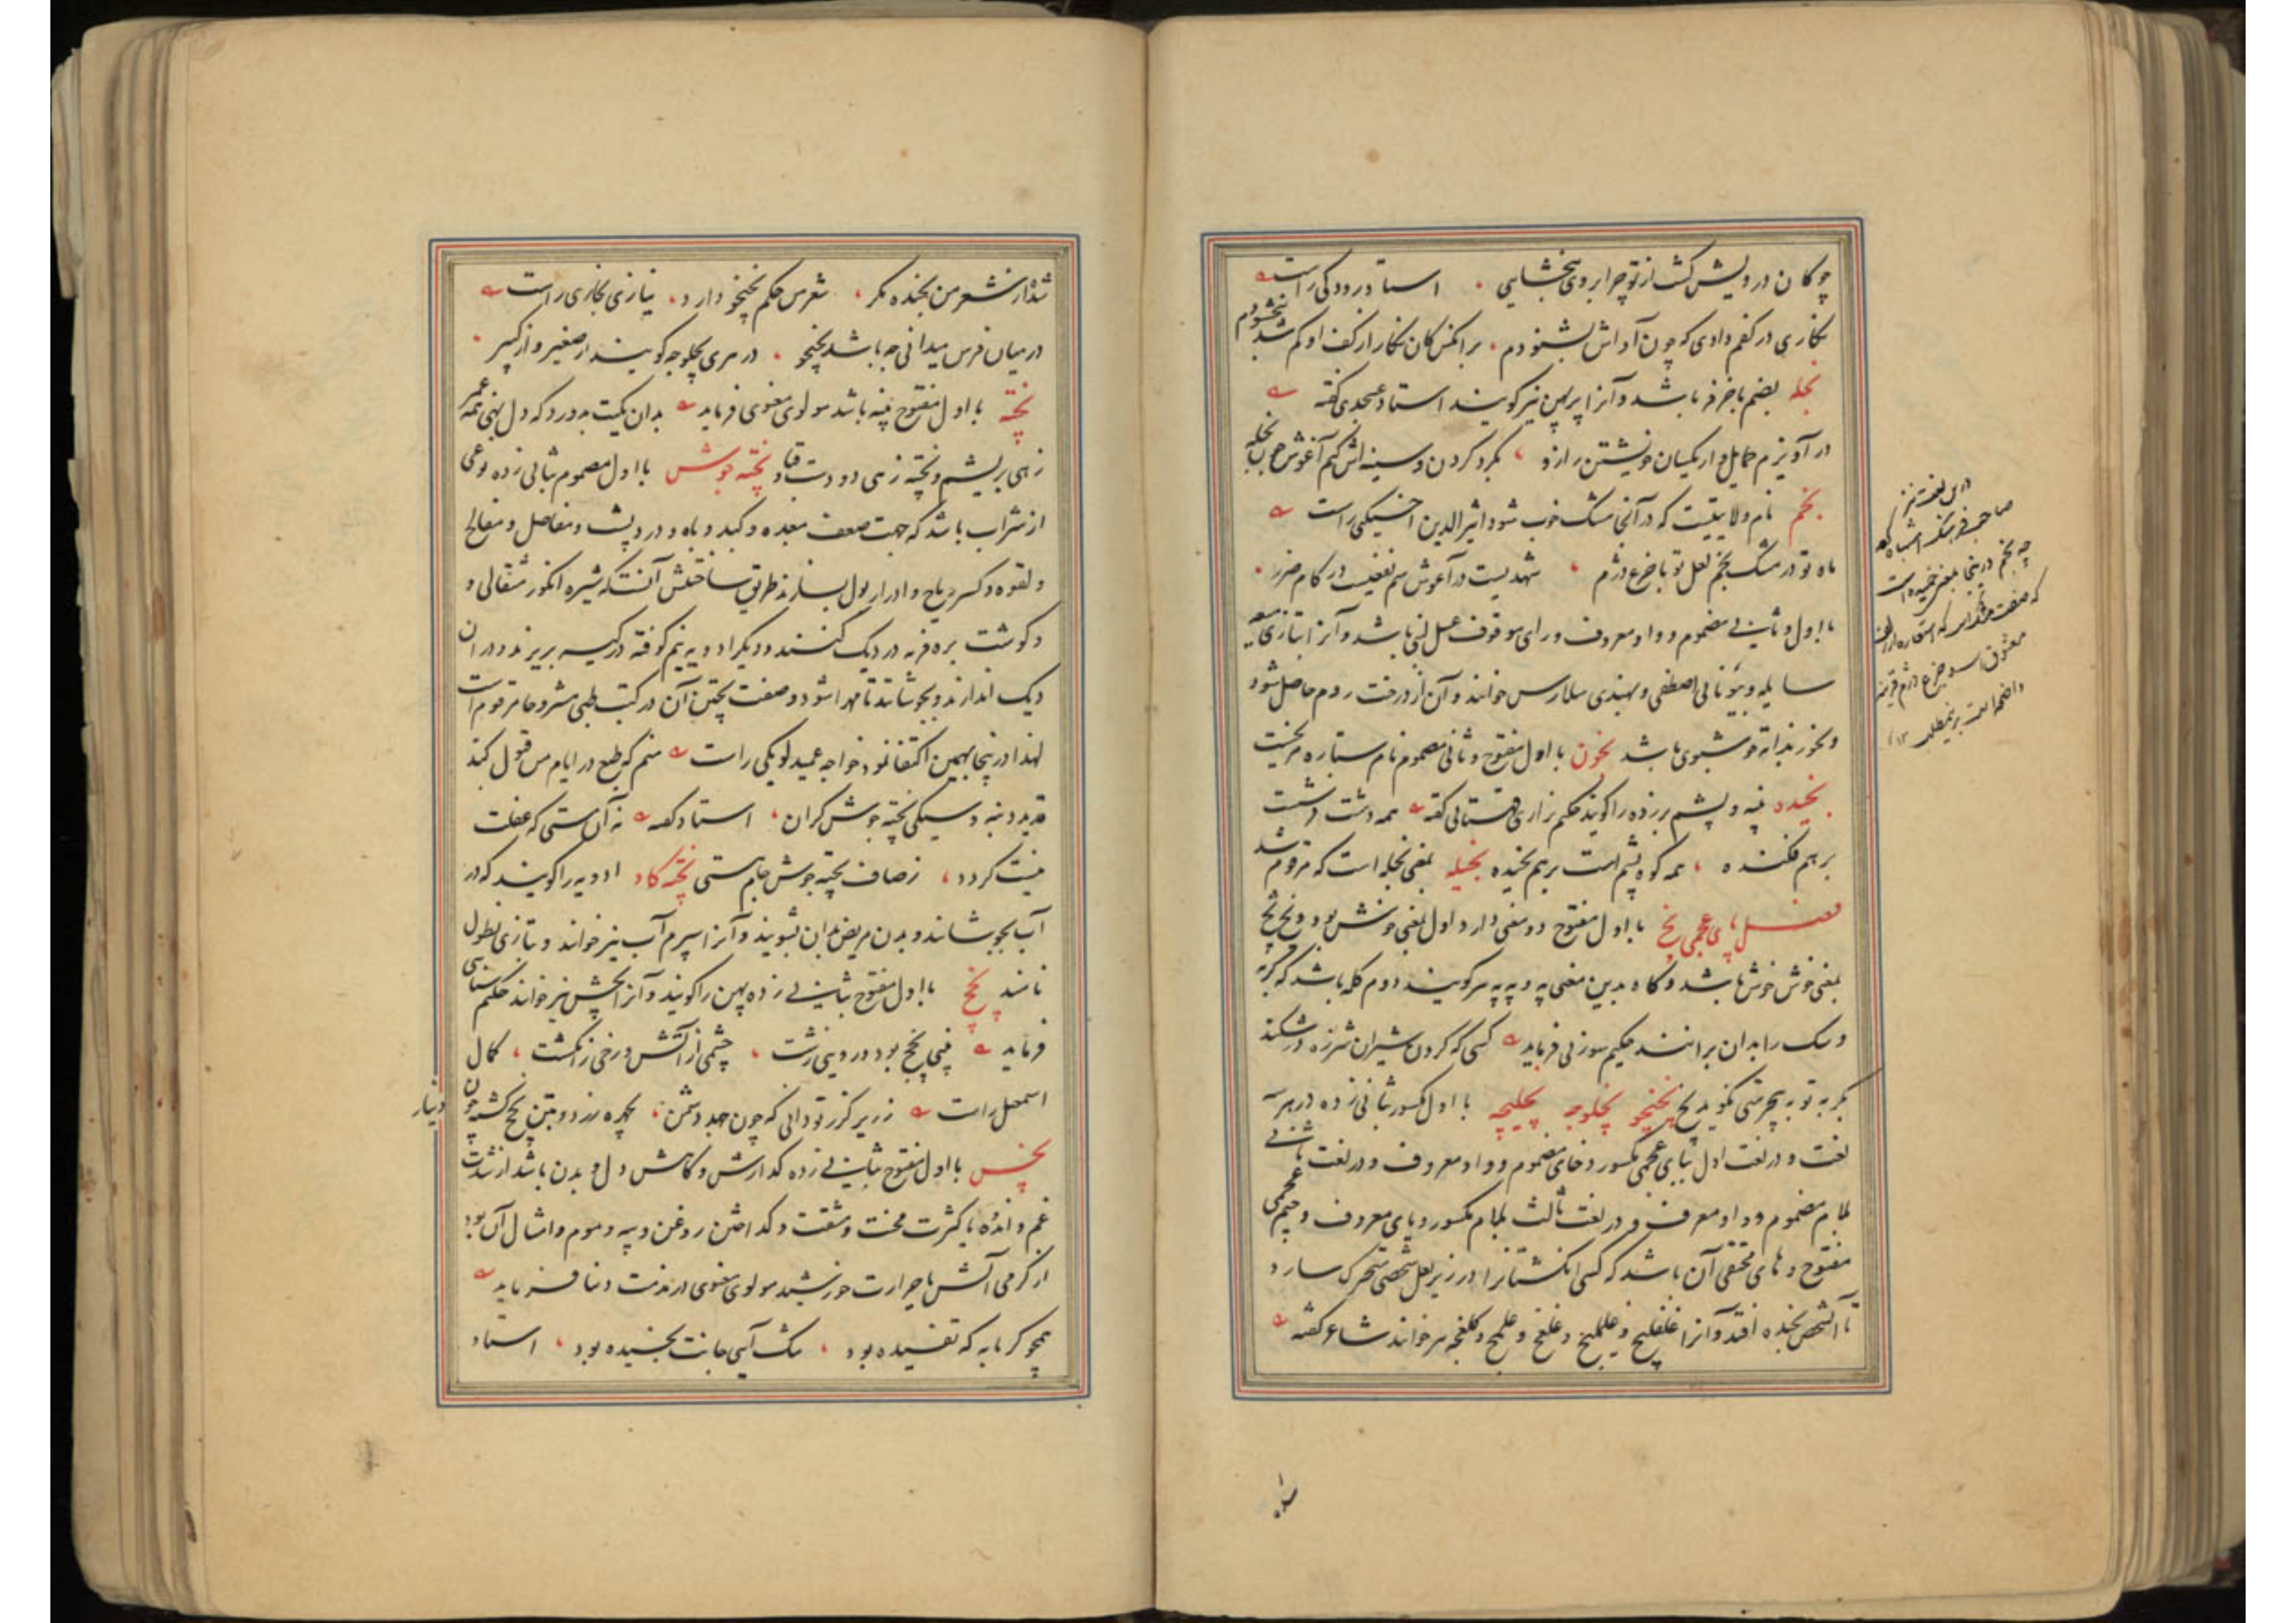 چو کان درویش گشت از تو چرا بر وی نبخشایی ، استاد رودکی راست
نگاری در کفم دادی که چون آواش بشنودم ، بر انکس کان نگار از کف او کم شد ببخشودم
بخله بضم با خرفه باشد و آنرا پرپهن نیز گویند استاد عسجدی گفته
در آویزم حمایل وار یکسان خویشتن را زو ، بگرد گردن و سینه اش کنم آغوش چون بخله
بخم نام ولایتیست که در آنجا مشک خوب شود اثیر الدین اخسیکتی راست
ماه تو در مشک بخم لعل تو با جزع دژم ، شهدیست در آغوش سم نفعیست در کام ضرر ،
با اول و ثانی مضموم و واو معروف و رای موقوف عسل لبنی باشد و آنرا بتازی میعه
سایله و بیونانی اصطفی و بهندی سلارس خوانند و آن از درخت روم حاصل شود
و بخور بذاته خوشبوی باشد بخون با اول مفتوح و ثانی مضموم نام ستاره مریخست
بخیده پنبه و پشم بر زده را گویند حکیم نزاری قهستانی گفته همه دشت در پشت
بر هم فکنده ، همه کوه پشم است بر هم بخیده بخیله بمعنی بخله است که مرقوم شد
فصل بای عجمی پخ با اول مفتوح دو معنی دارد اول بمعنی خوش بود و پخ پخ
بمعنی خوش خوش باشد و گاه بدین معنی په و په په نیز گویند دوم کلمه باشد که گربه
و سک را بدان برانند حکیم سوزنی فرماید کسی که گردن شیران شرزه در شکند
بگربه تو به بیحرمتی نگوید پخ پخپخو پخلوجه پخلیچه با اول مکسور بثانی زده در هر سه
لغت و در لغت اول ببای عجمی مکسور و خای مضموم و واو معروف و در لغت ثانی
بلام مضموم و واو معروف و در لغت ثالث بلام مکسور و یای معروف و جیم عجمی
مفتوح و های مختفی آن باشد که کسی انکشتانرا در زیر بغل شخصی متحرک سازد
تا آنشخص بخنده افتد و آنرا غلغلیچ و غلملیج و غلغچ و غلمج و کلغچه نیز خوانند شاعر گفته
درین لغت نیز
صاحب فرهنگ اشتباه کرده
چه بخم درینجا بمعنی خمیده است
معشوق است و جزع دژم قرینه
شد از شعر من بخنده مکر ، شعر من حکم پخپخو دارد ، نیازی بخاری راست
در میان فرس میدانی چه باشد پخپخو ، در هری پخلوجه گویند از صغیر و از کبیر ،
پخته با اول مفتوح پنبه باشد مولوی معنوی فرماید
زهی بریشم و پخته زهی دو دست قباد پخته جوش با اول مضموم بثانی زده نوعی
از شراب باشد که جهت ضعف معده و کبد و باه و درد پشت و مفاصل و فالج
و لقوه و کسر ریاح و ادرار بول بسازند طریق ساختنش آنست که شیره انکور مثقالی و
و گوشت بره فربه در دیک کنند و دیگر ادویه نیم کوفته در کیسه بریزند و در ان
دیک اندازند و بجوشانند تا مهرا شود و صفت پختن آن در کتب طبی مشروحا مرقوم است
لهذا درینجا بهمین اکتفا نمود خواجه عمید لویکی راست منم که طمع در ایام من قبول کند
قدید و نبه و سیکی پخته جوش گران ، استاد گفته نه آن مستی که عقلت
نیست گردد ، ز صاف پخته جوش جام مستی پخته گاو ادویه را گویند که در
آب بجوشانند و بدن مریض بدان بشویند و آنرا اسپرم آب نیز خوانند و بتازی نطول
نامند پخچ با اول مفتوح بثانی زده پهن را گویند و آنرا پخش نیز خوانند حکیم سنائی
فرماید بینی پخچ بود و رویی زشت ، چشمی از آتش و رخی ز انکشت ، کمال
اسمعیل راست ز زیر گرز تو دانی که چون جهد دشمن ، بچهره زرد و بتن پخچ گشته چون
دینار
پخس با اول مفتوح بثانی زده گدازش و کاهش دل و بدن باشد از شدت
غم و اندوه یا کثرت محنت و مشقت و گداختن روغن و پیه و موم و امثال آن بود
از گرمی آتش یا حرارت خورشید مولوی معنوی در مذمت دنیا فرماید
همچو گرمابه که تفسیده بود ، تنک آیی جانت پخسیده بود ، استاد